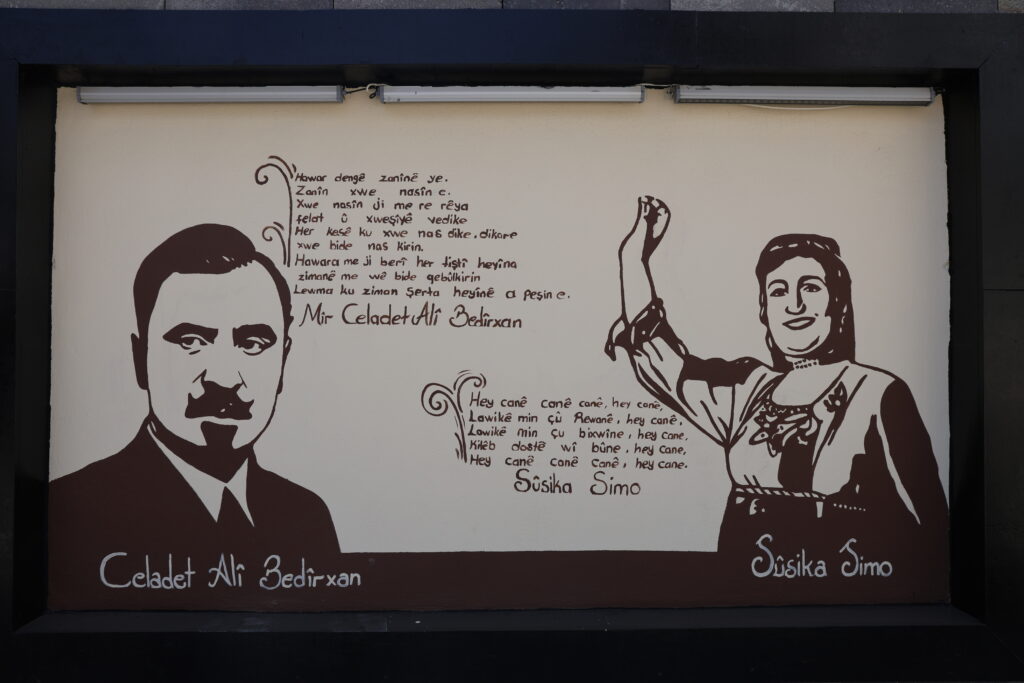 Hawar dengê zanînê ye.
Zanîn xwe nasîn e.
Xwe nasîn ji me re rêya
felat û xweşîyê vedike
Her kesê ku xwe nas dike, dikare
xwe bide nas kirin.
Hawara me ji berî her tiştî heyîna
zimanê me wê bide qebûlkirin
Lewma ku ziman şerta heyînê a peşin e.
Mîr Celadet Alî Bedîrxan
Hey canê canê canê, hey canê,
Lawikê min çû Rewanê, hey canê,
Lawikê min çu bixwîne, hey cane,
Kitêb dostê wî bûne, hey cane,
Hey canê canê Canê, hey cane.
Sûsika Simo
Celadet Alî Bedîrxan
Sûsika Simo